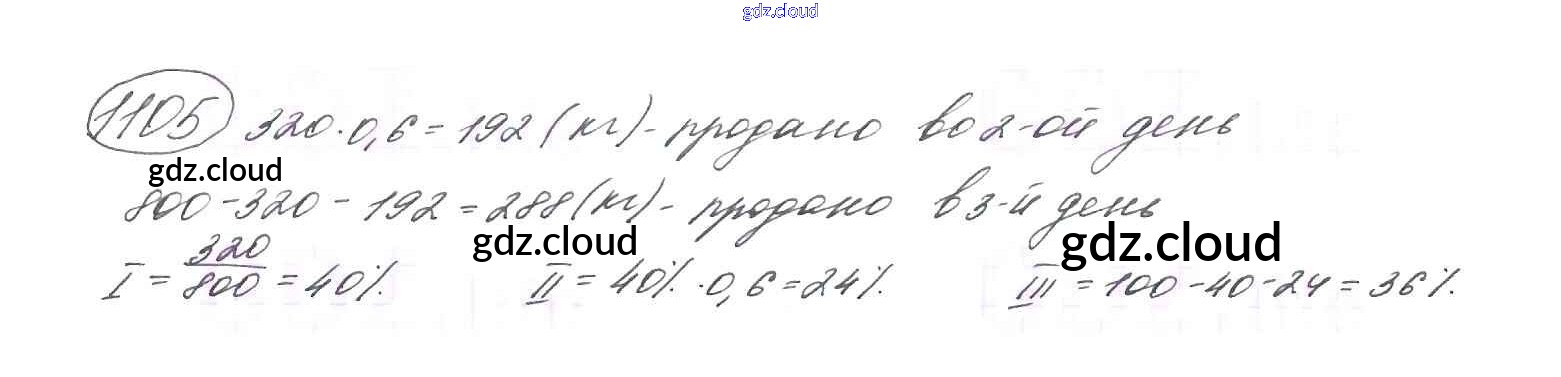 gdz.cloud
1105 320·0,6=192 (кг)- продано во 2-ой день
gdz.cloud
800-320-192=288(кг)- продано в 3-й день
gdz.cloud
gdz.cloud
I = 320/800 = 40% II = 40%·0,6=24% III = 100-40-24=36%